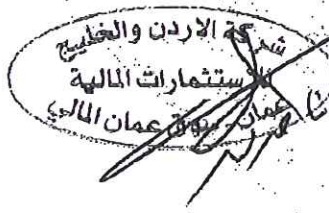 شركة الاردن والخليج
للاستثمارات المالية
عمان - سوق عمان المالي